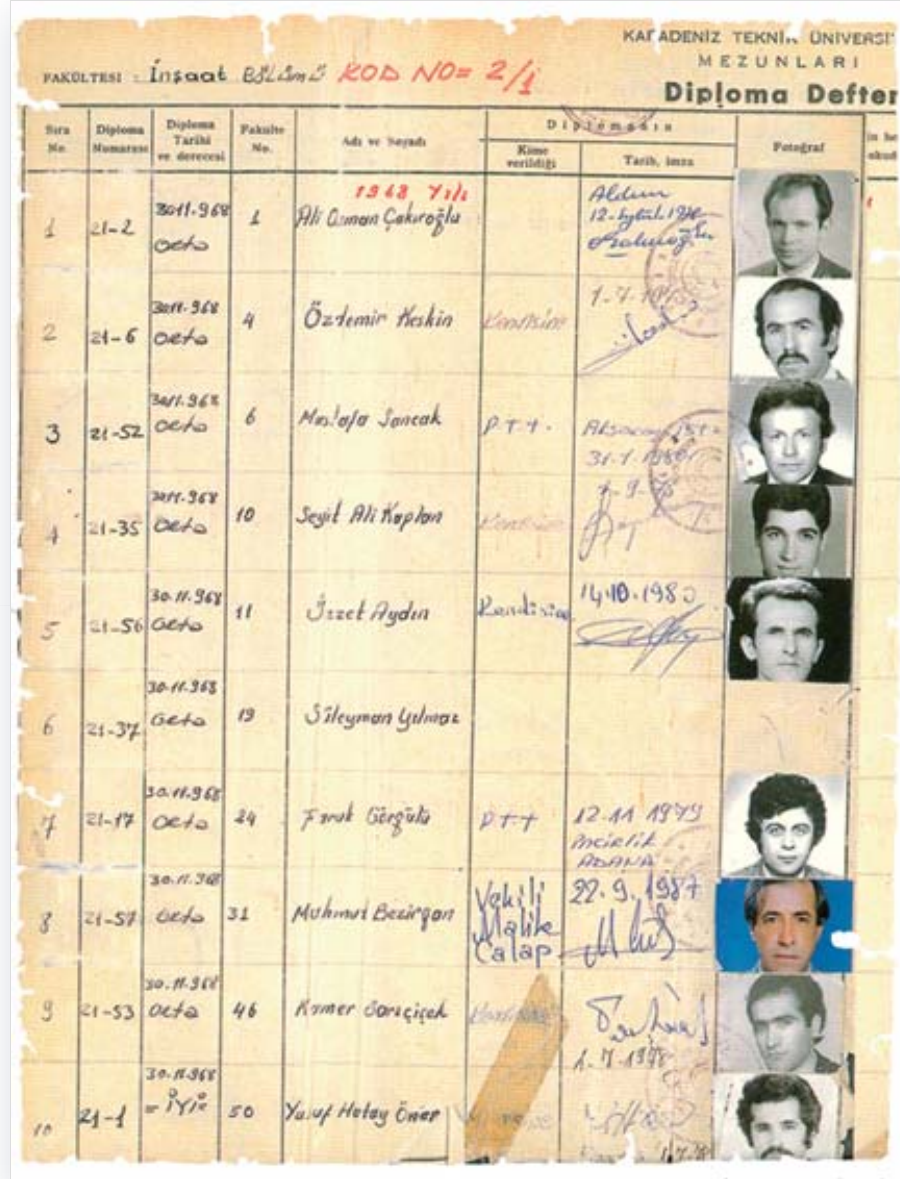 KARADENİZ TEKNİK ÜNİVERSİ
MEZUNLARI
Diploma Defter
FAKÜLTESİ : İnşaat Bölümü KOD NO= 2/1
Sıra No.
Diploma Numarası
Diploma Tarihi ve derecesi
Fakülte No.
Adı ve Soyadı
Diplomanın
Kime verildiği
Tarih, imza
Fotoğraf
1968 Yılı
1 21-2 30.11.968 Orta 1 Ali Osman Çakıroğlu Aldım 12. Eylül
2 21-6 30.11.968 Orta 4 Özdemir Keskin Kendisine
3 21-52 30.11.968 Orta 6 Mustafa Sancak P.T.T. Aksaray
4 21-35 30.11.968 Orta 10 Seyit Ali Kaplan
5 21-56 30.11.968 Orta 11 İzzet Aydın Kendisine 14.10.1980
6 21-37 30.11.968 Orta 19 Süleyman Yılmaz
7 21-17 30.11.968 Orta 24 Faruk Görgülü PTT 12.11 1979 İncirlik ADANA
8 21-57 30.11.968 Orta 31 Mahmut Bezirgan Vekili Malike Çalap 22.9.1987
9 21-53 30.11.968 Orta 46 Kamer Sarıçiçek 1.7.1978
10 21-1 30.11.968 = İYİ = 50 Yusuf Hatay Öner